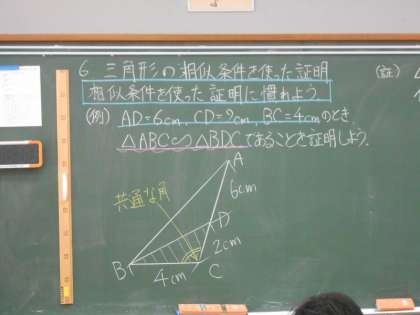 6 三角形の相似条件を使った証明
相似条件を使った証明に慣れよう.
(例) AD=6cm, CD=2cm, BC=4cmのとき
△ABC∽△BDCであることを証明しよう.
(証)
A
6cm
共通な角
D
2cm
B
4cm
C